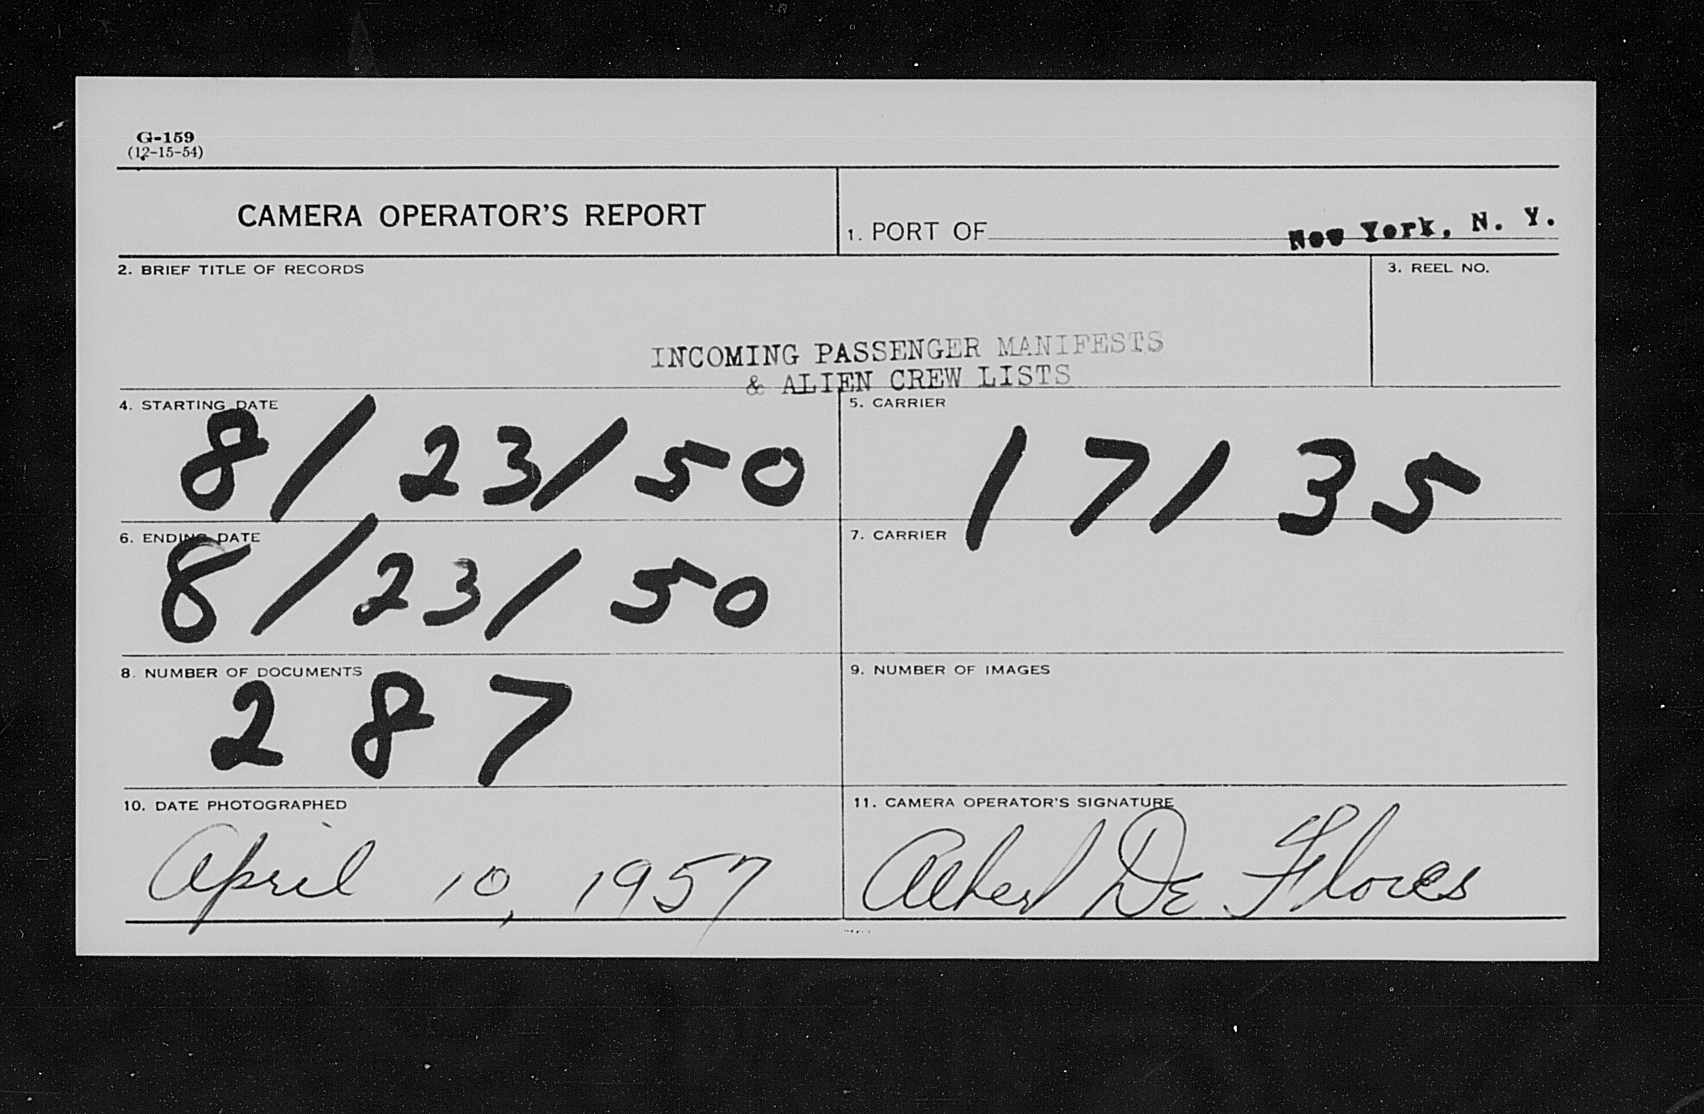 G-159
(12-15-54)
CAMERA OPERATOR'S REPORT
1. PORT OF New York, N. Y.
2. BRIEF TITLE OF RECORDS
3. REEL NO.
INCOMING PASSENGER MANIFESTS
& ALIEN CREW LISTS
4. STARTING DATE
8/23/50
5. CARRIER
17135
6. ENDING DATE
8/23/50
7. CARRIER
8. NUMBER OF DOCUMENTS
287
9. NUMBER OF IMAGES
10. DATE PHOTOGRAPHED
April 10, 1957
11. CAMERA OPERATOR'S SIGNATURE
Albert De Flores